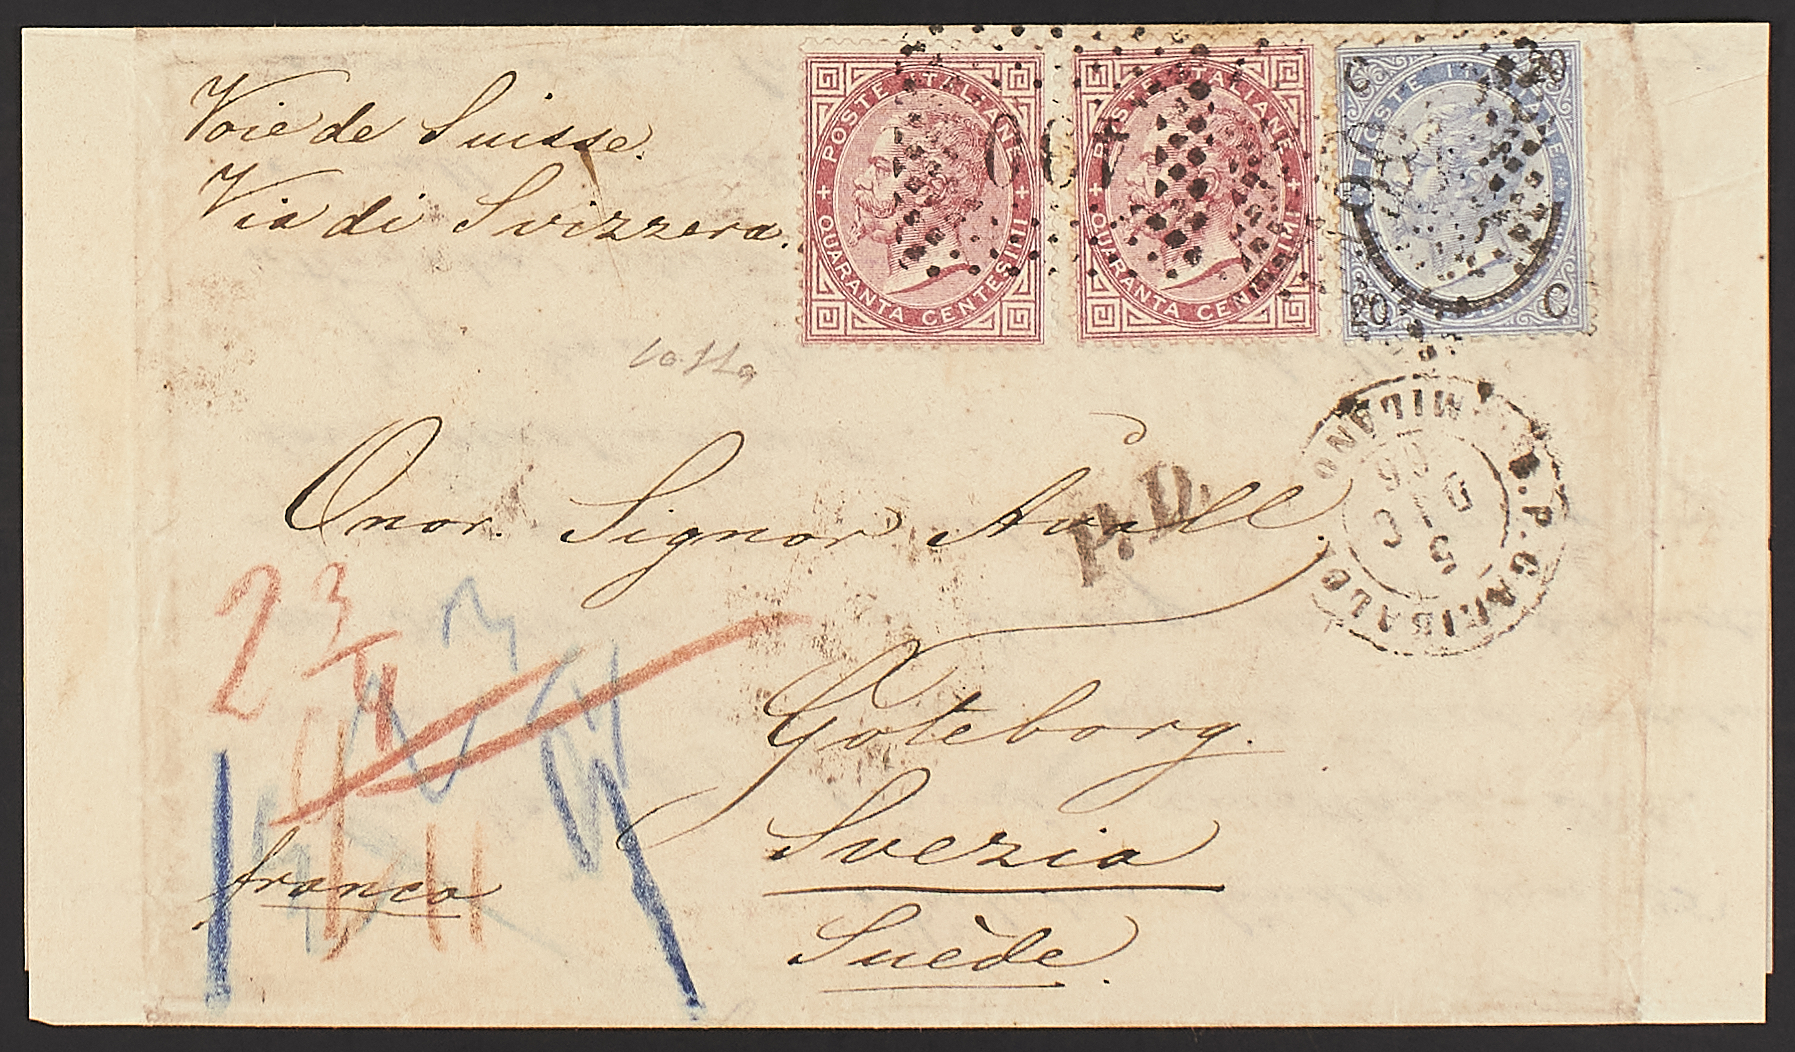 Voie de Suisse.
Via di Svizzera.
POSTE ITALIANE
QUARANTA CENTESIMI
POSTE ITALIANE
QUARANTA CENTESIMI
C 20
POSTE ITALIANE
20 C
Onor. Signor
P.D.
MILANO
B.P. GARIBALDI
5 DIC 66
Göteborg.
Svezia
Suède.
franco
2 3/4